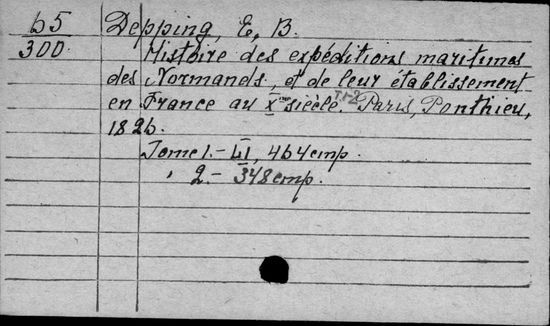 65
300
Depping, E, B.
Histoire des expéditions maritimes
des Normands, et de leur établissement
en France au Xme siècle. т.1-2 Paris, Ponthieu,
1826.
Tome 1. - LI, 464 cmp.
" 2. - 348 cmp.